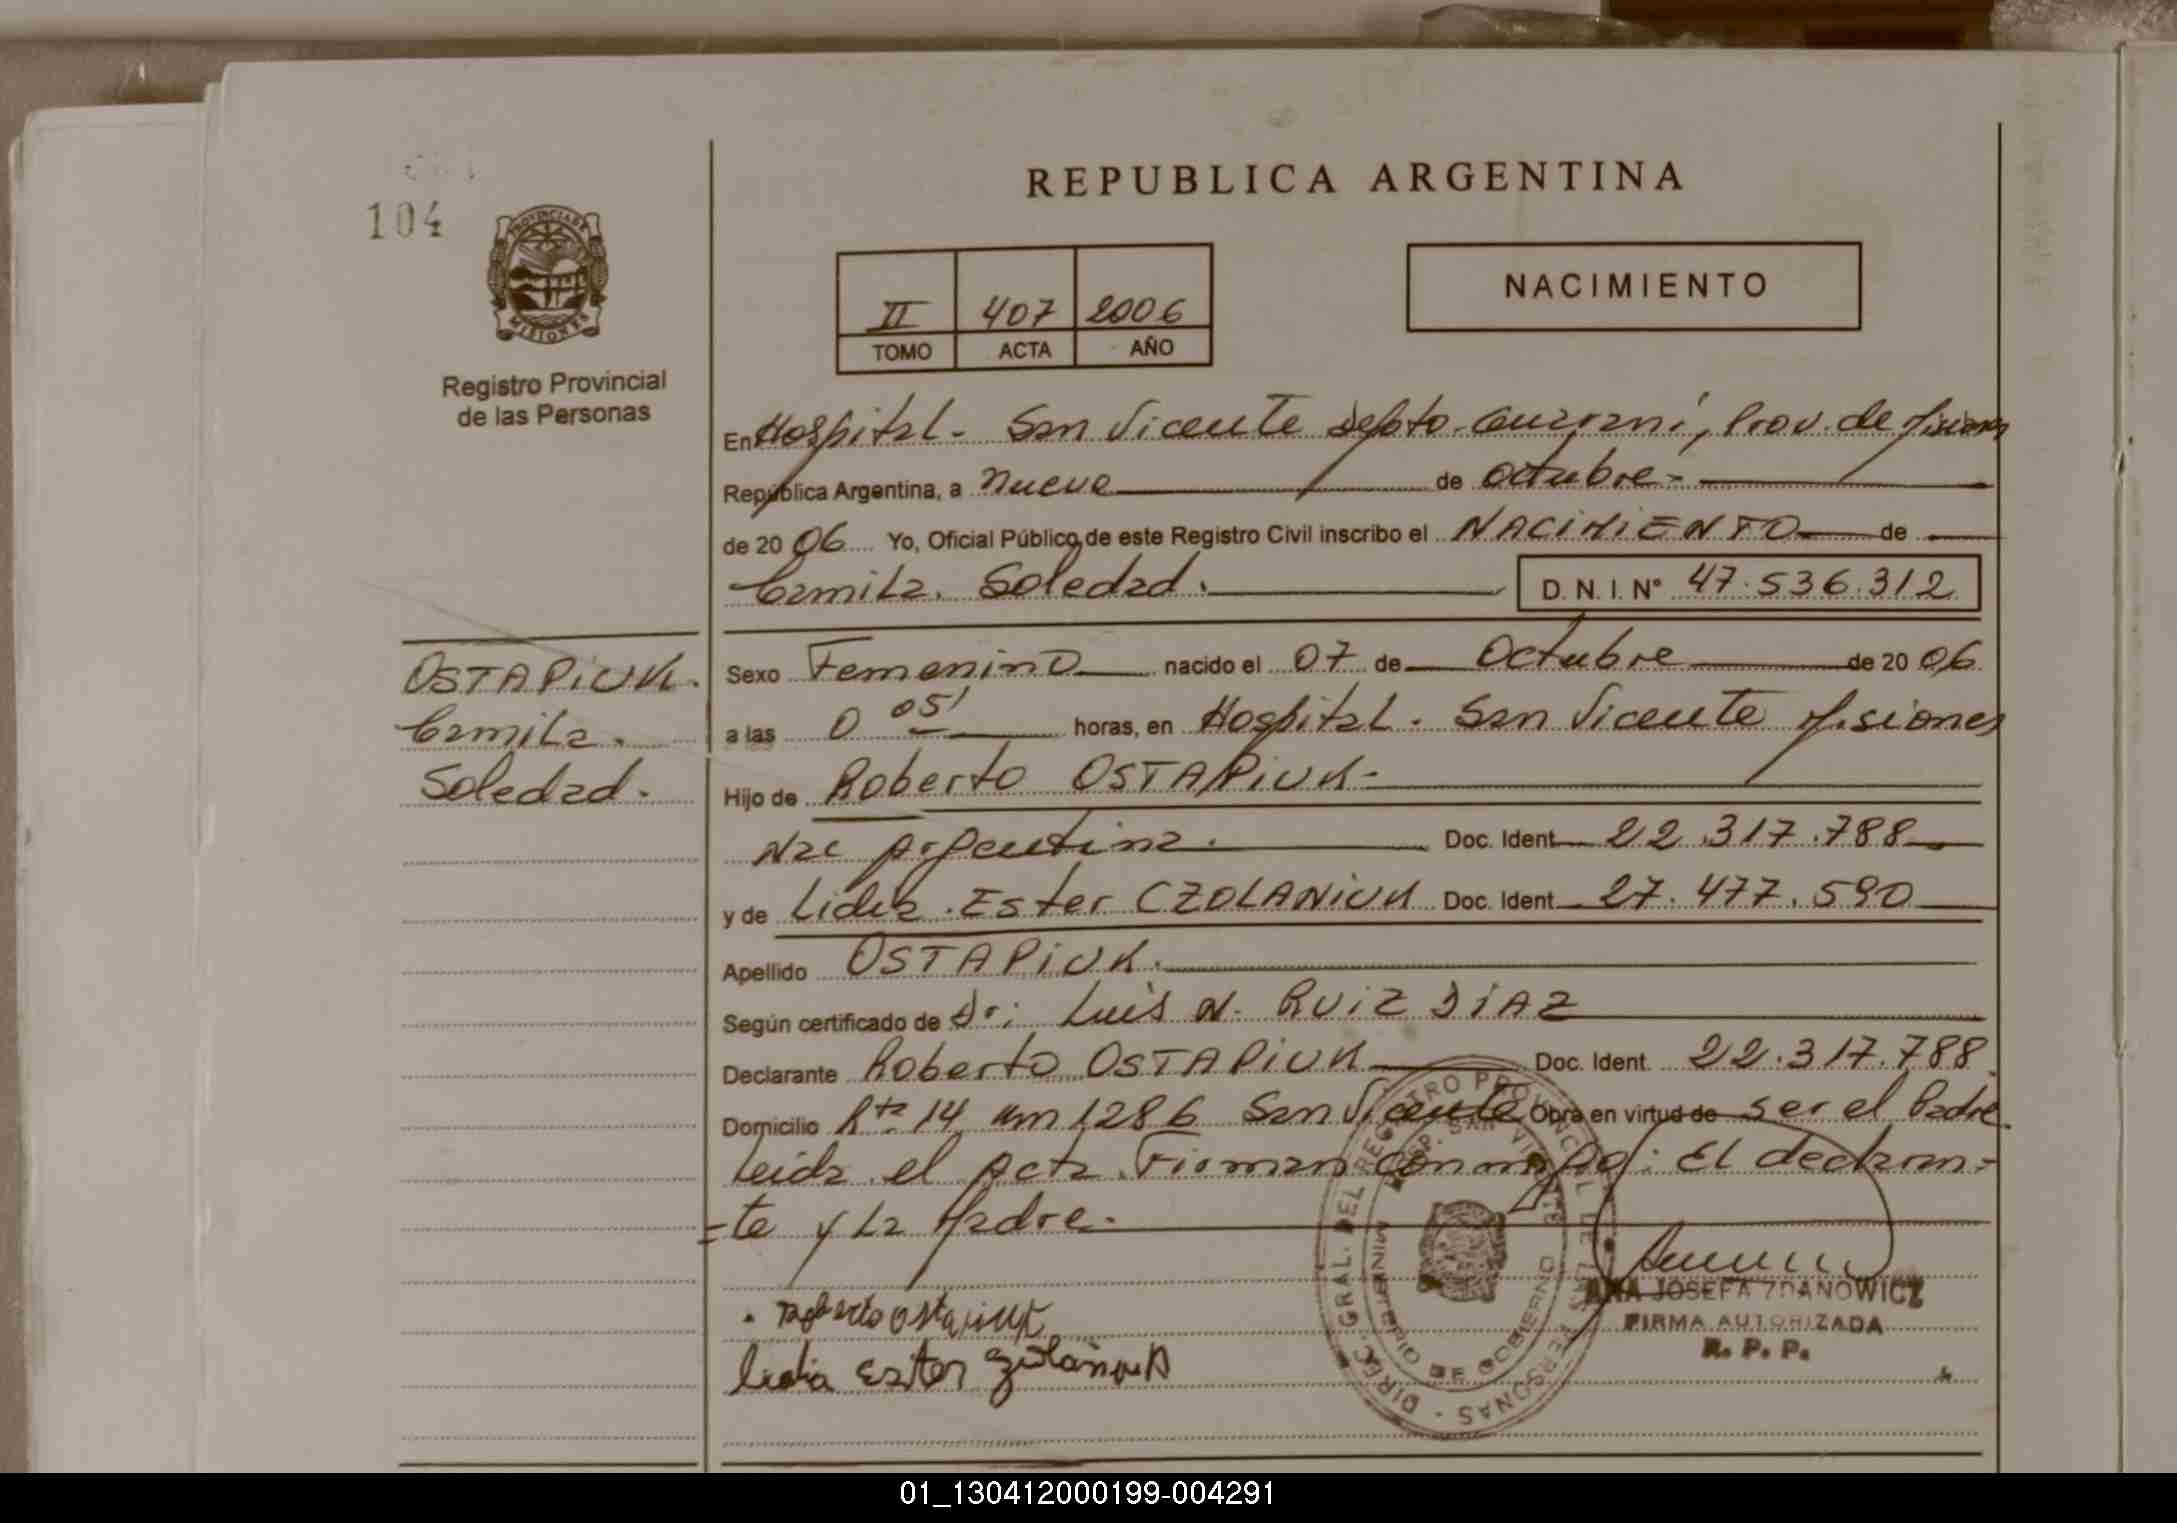 104
PROVINCIA DE
MISIONES
Registro Provincial
de las Personas
REPUBLICA ARGENTINA
NACIMIENTO
II 407 2006
TOMO ACTA AÑO
En Hospital - San Vicente depto. Guaraní, Prov. de Misiones
República Argentina, a nueve de octubre -
de 20 06 Yo, Oficial Público de este Registro Civil inscribo el NACIMIENTO de
Camila. Soledad. D. N. I. Nº 47.536.312
OSTAPIUK.
Camila.
Soledad.
Sexo Femenino nacido el 07 de Octubre de 20 06
a las 0 05' horas, en Hospital - San Vicente Misiones
Hijo de Roberto OSTAPIUK -
Nac Argentina. Doc. Ident 22.317.788
y de Lidia Ester CZOLANIUK Doc. Ident 27.477.590
Apellido OSTAPIUK.
Según certificado de Dr: Luis N. RUIZ DIAZ
Declarante Roberto OSTAPIUK Doc. Ident. 22.317.788
Domicilio Rta 14 Km 1286 San Vicente Obra en virtud de ser el Padre.
Leida el Acta. Firman conmigo: El declaran-
-te y La Madre.
Roberto Ostapiuk
Lidia Ester
DIREC. GRAL. DEL REGISTRO PROVINCIAL DE LAS PERSONAS
MINISTERIO DE GOBIERNO
SAN VICENTE
ANA JOSEFA ZDANOWICZ
FIRMA AUTORIZADA
R. P. P.
01_130412000199-004291